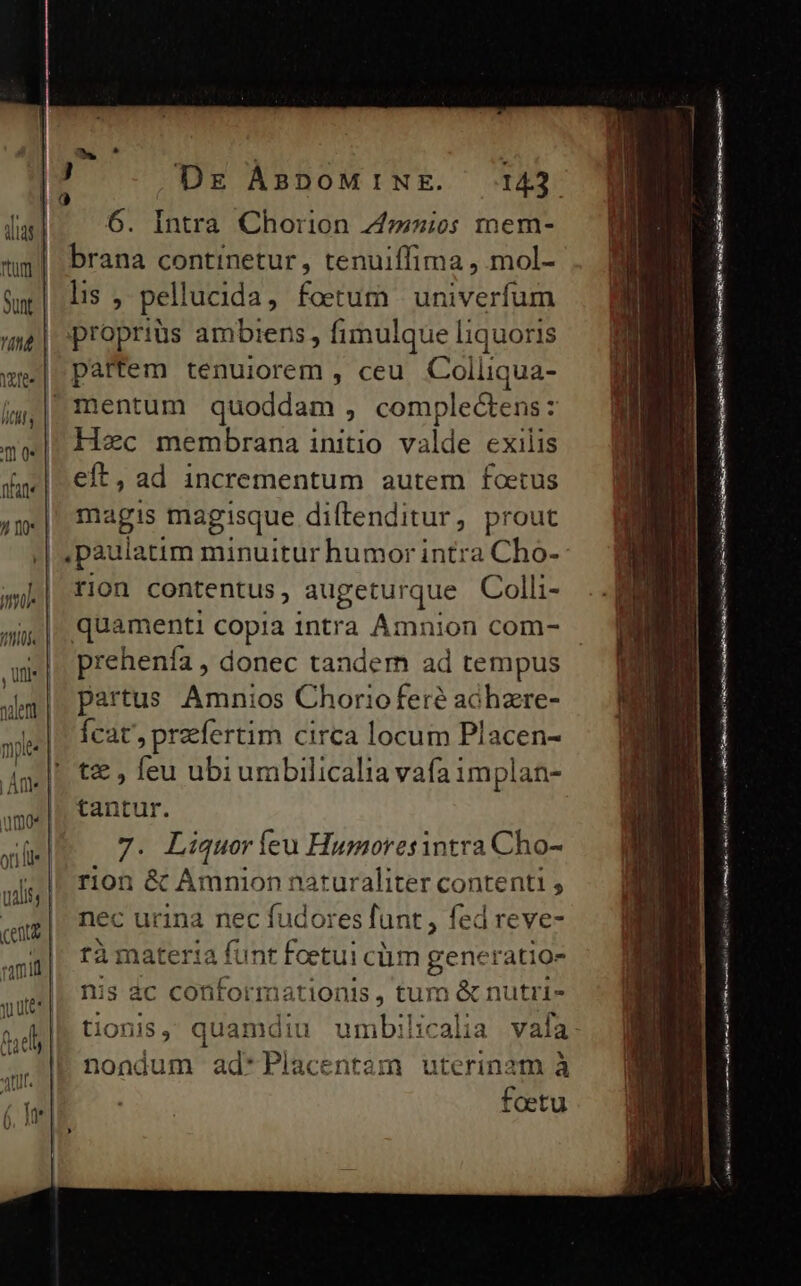 DE ABDOMINE. 143
6. Intra Chorion Amnios mem-
brana continetur, tenuiſſima, mol-
lis, pellucida, fœtum univerſum
propriùs ambiens, ſimulque liquoris
partem tenuiorem, ceu Colliqua-
mentum quoddam, complectens:
Hæc membrana initio valde exilis
eſt, ad incrementum autem fœtus
magis magisque diſtenditur, prout
paulatim minuitur humor intra Cho-
rion contentus, augeturque Colli-
quamenti copia intra Amnion com-
prehenſa, donec tandem ad tempus
partus Amnios Chorio ferè adhære-
ſcat, præſertim circa locum Placen-
tæ, ſeu ubi umbilicalia vaſa implan-
tantur.
7. Liquor ſeu Humores intra Cho-
rion & Amnion naturaliter contenti,
nec urina nec ſudores ſunt, ſed reve-
rà materia ſunt fœtui cùm generatio-
nis ac conformationis, tum & nutri-
tionis, quamdiu umbilicalia vaſa
nondum ad Placentam uterinam à
fœtu